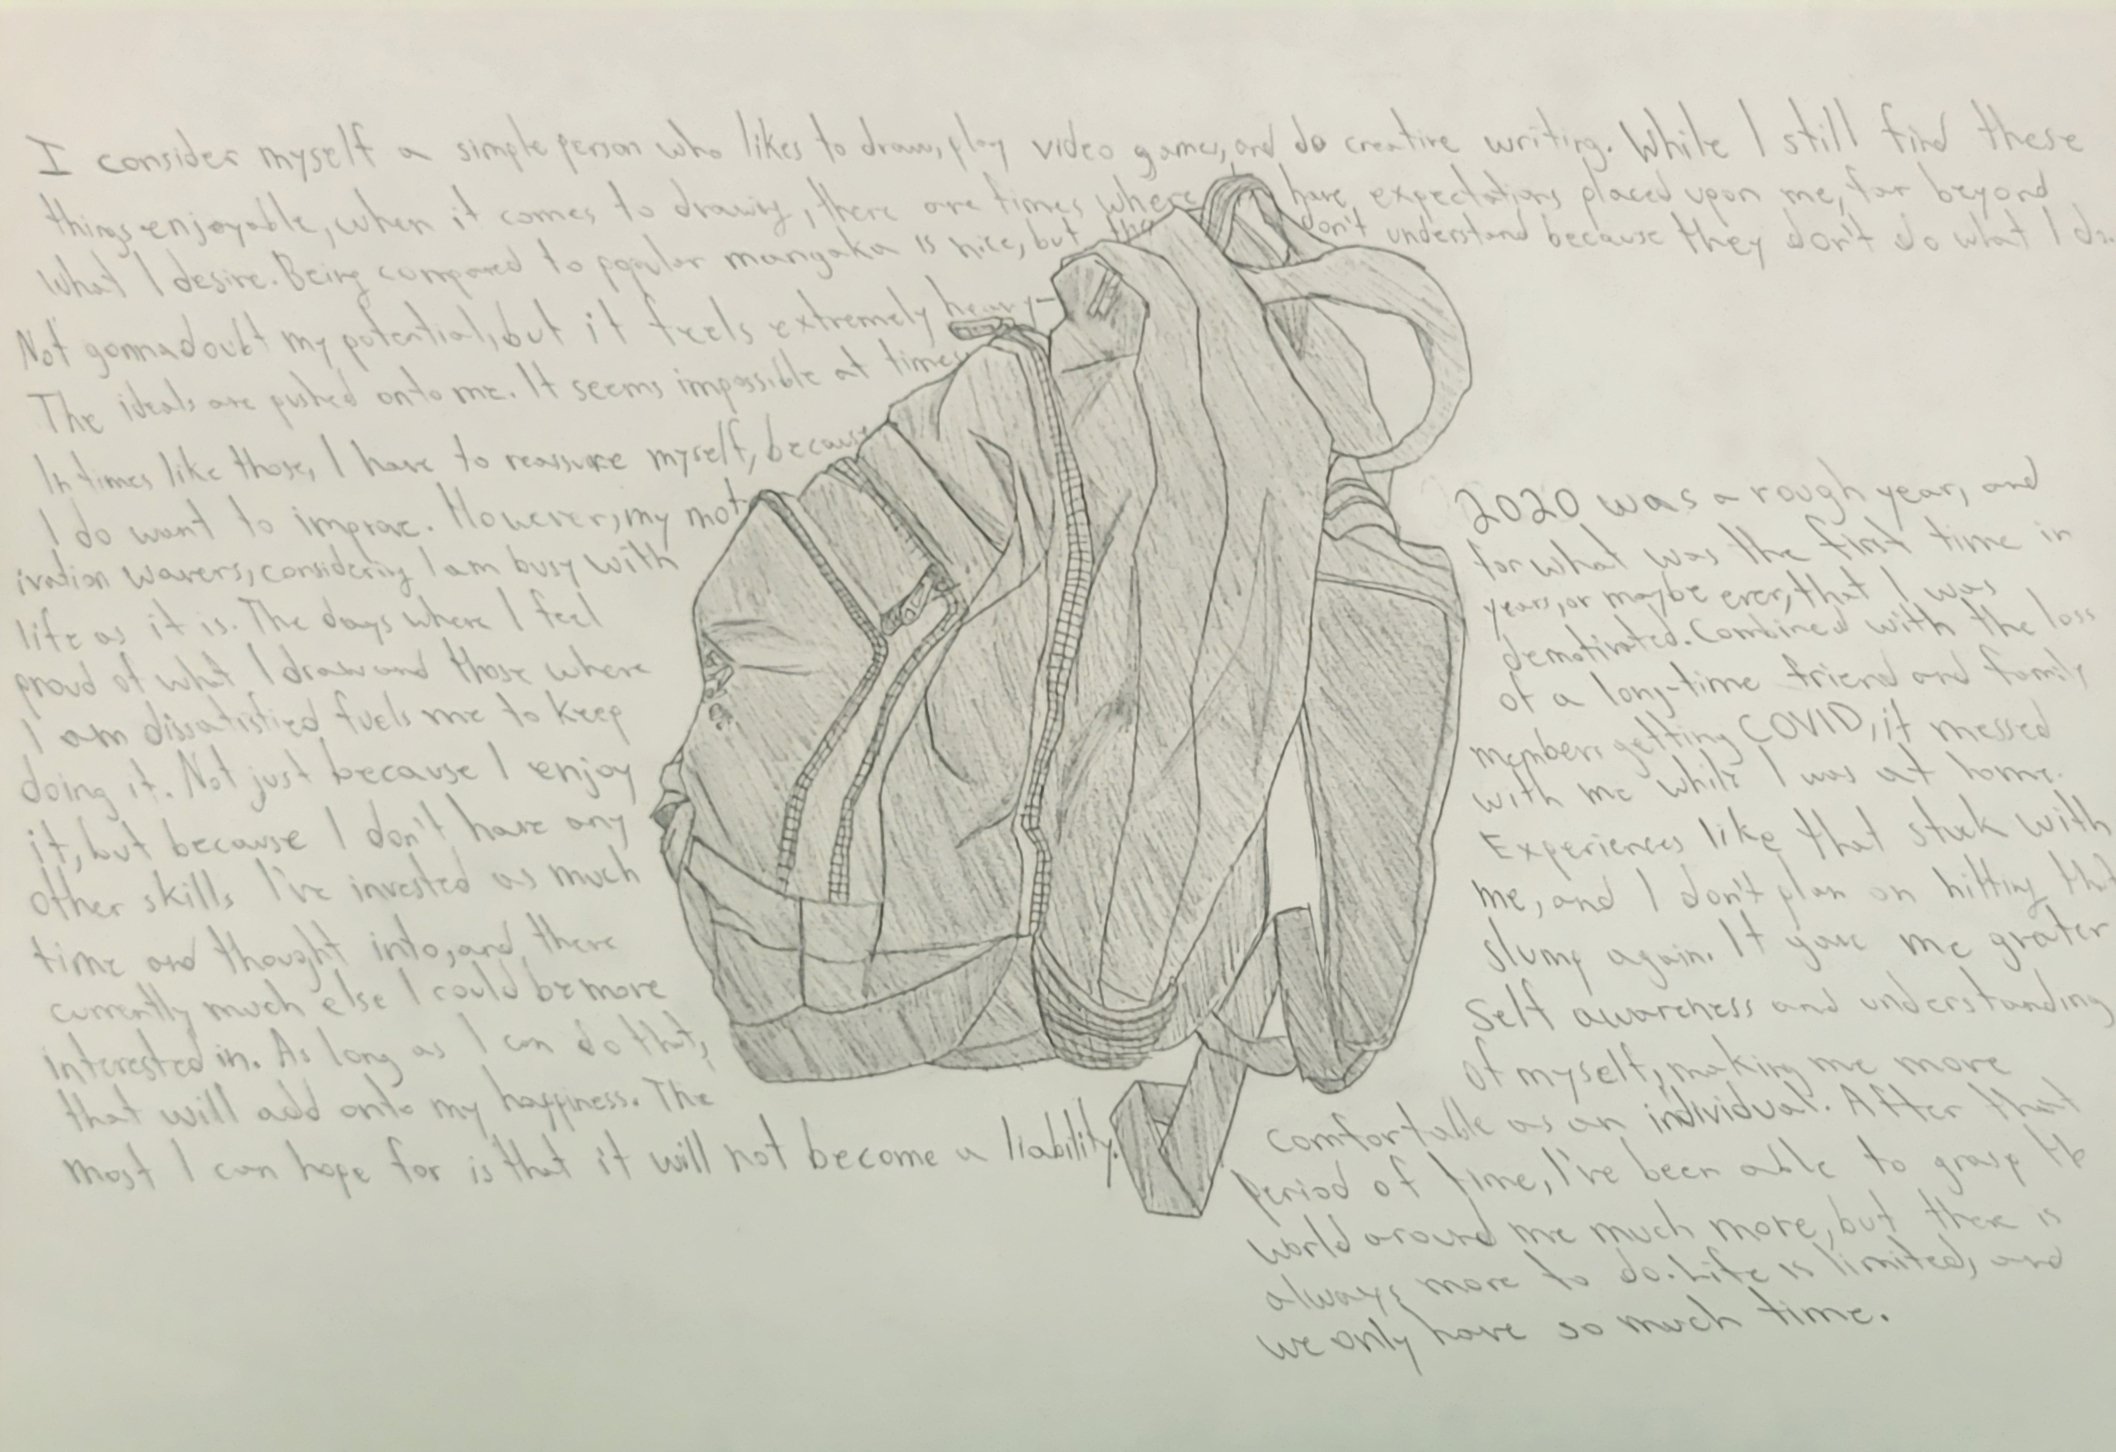 I consider myself a simple person who likes to draw, play video games, and do creative writing. While I still find these
things enjoyable, when it comes to drawing, there are times where I have expectations placed upon me, far beyond
what I desire. Being compared to popular mangaka is nice, but they don't understand because they don't do what I do.
Not gonna doubt my potential, but it feels extremely heavy-
The ideals are pushed onto me. It seems impossible at times
In times like those, I have to reassure myself, because
I do want to improve. However, my mot
ivation wavers, considering I am busy with
life as it is. The days where I feel
proud of what I draw and those where
I am dissatisfied fuels me to keep
doing it. Not just because I enjoy
it, but because I don't have any
other skills I've invested as much
time and thought into, and, there
currently much else I could be more
interested in. As long as I can do that,
that will add onto my happiness. The
most I can hope for is that it will not become a liability.
2020 was a rough year, and
for what was the first time in
years, or maybe ever, that I was
demotivated. Combined with the loss
of a long-time friend and family
members getting COVID, it messed
with me while I was at home.
Experiences like that stuck with
me, and I don't plan on hitting that
slump again. It gave me grater
self awareness and understanding
of myself, making me more
comfortable as an individual. After that
period of time, I've been able to grasp the
world around me much more, but there is
always more to do. Life is limited, and
we only have so much time.